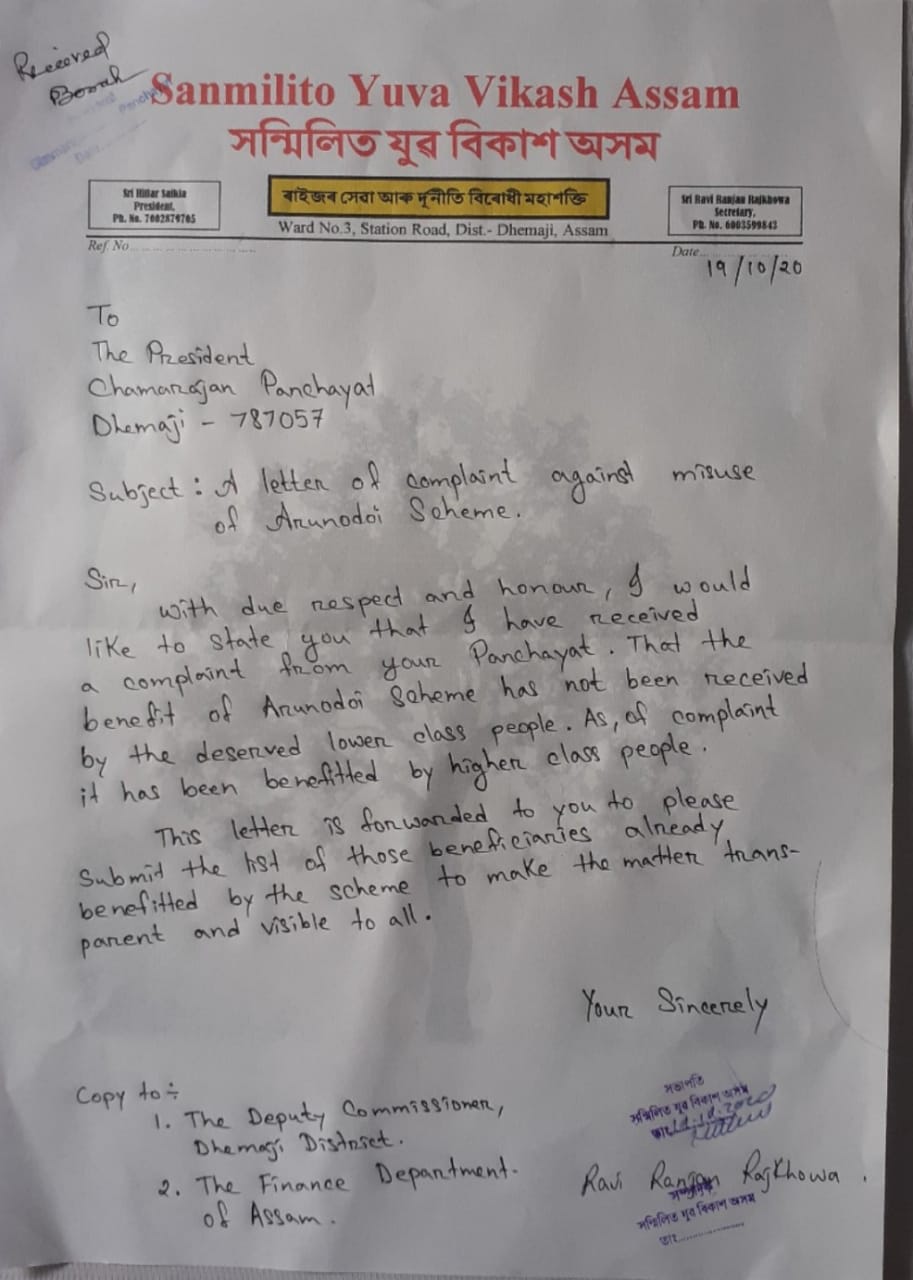 Received
Borah
Sanmilito Yuva Vikash Assam
সন্মিলিত যুৱ বিকাশ অসম
Sri Hillar Saikia
President,
Ph. No. 7002879705
ৰাইজৰ সেৱা আৰু দূৰ্নীতি বিৰোধী মহাশক্তি
Ward No.3, Station Road, Dist.- Dhemaji, Assam
Sri Ravi Ranjan Rajkhowa
Secretary,
Ph. No. 6003599843
Ref. No
Date
19/10/20
To
The President
Chamarajan Panchayat
Dhemaji - 787057
Subject : A letter of complaint against misuse
of Arunodoi Scheme.
Sir,
With due respect and honour, I would
like to state you that I have received
a complaint from your Panchayat. That the
benefit of Arunodoi Scheme has not been received
by the deserved lower class people. As, of complaint
it has been benefitted by higher class people.
This letter is forwarded to you to please
Submit the list of those beneficiaries already
benefitted by the scheme to make the matter trans-
parent and visible to all.
Your Sincerely
Copy to ÷
1. The Deputy Commissioner,
Dhemaji District.
2. The Finance Department.
of Assam.
সভাপতি
সন্মিলিত যুৱ বিকাশ অসম
তাং
Ravi Ranjan Rajkhowa.
সন্মিলিত যুৱ বিকাশ অসম
তাং